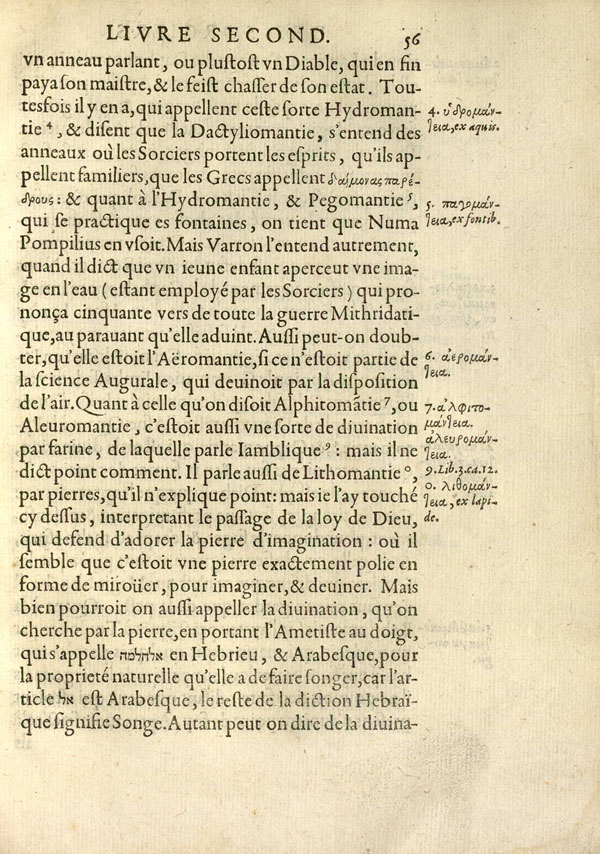 LIVRE SECOND. 56
vn anneau parlant, ou plustost vn Diable, qui en fin
paya son maistre, & le feist chasser de son estat. Tou-
tesfois il y en a, qui appellent ceste sorte Hydroman-
tie⁴, & disent que la Dactyliomantie, s'entend des
anneaux où les Sorciers portent les esprits, qu'ils ap-
pellent familiers, que les Grecs appellent δαίμονας παρέ-
δρους: & quant à l'Hydromantie, & Pegomantie⁵,
qui se practique es fontaines, on tient que Numa
Pompilius en vsoit. Mais Varron l'entend autrement,
quand il dict que vn ieune enfant aperceut vne ima-
ge en l'eau (estant employé par les Sorciers) qui pro-
nonça cinquante vers de toute la guerre Mithridati-
que, au parauant qu'elle aduint. Aussi peut-on doub-
ter, qu'elle estoit l'Aëromantie, si ce n'estoit partie de
la science Augurale, qui deuinoit par la disposition
de l'air. Quant à celle qu'on disoit Alphitomātie⁷, ou
Aleuromantie, c'estoit aussi vne sorte de diuination
par farine, de laquelle parle Iamblique⁹: mais il ne
dict point comment. Il parle aussi de Lithomantie⁰,
par pierres, qu'il n'explique point: mais ie l'ay touché
cy dessus, interpretant le passage de la loy de Dieu,
qui defend d'adorer la pierre d'imagination: où il
semble que c'estoit vne pierre exactement polie en
forme de miroüer, pour imaginer, & deuiner. Mais
bien pourroit on aussi appeller la diuination, qu'on
cherche par la pierre, en portant l'Ametiste au doigt,
qui s'appelle אלחלמה en Hebrieu, & Arabesque, pour
la proprieté naturelle qu'elle a de faire songer, car l'ar-
ticle אל est Arabesque, le reste de la diction Hebraï-
que signifie Songe. Autant peut on dire de la diuina-
4. ὑδρομάν-
τεια, ex aquis.
5. παγομάν-
τεια, ex fontib.
6. ἀερομάν-
τεια.
7. ἀλφιτο-
μάντεια.
ἀλευρομάν-
τεια.
9. Lib. 3. ca. 12.
0. λιθομάν-
τεια, ex lapi-
de.